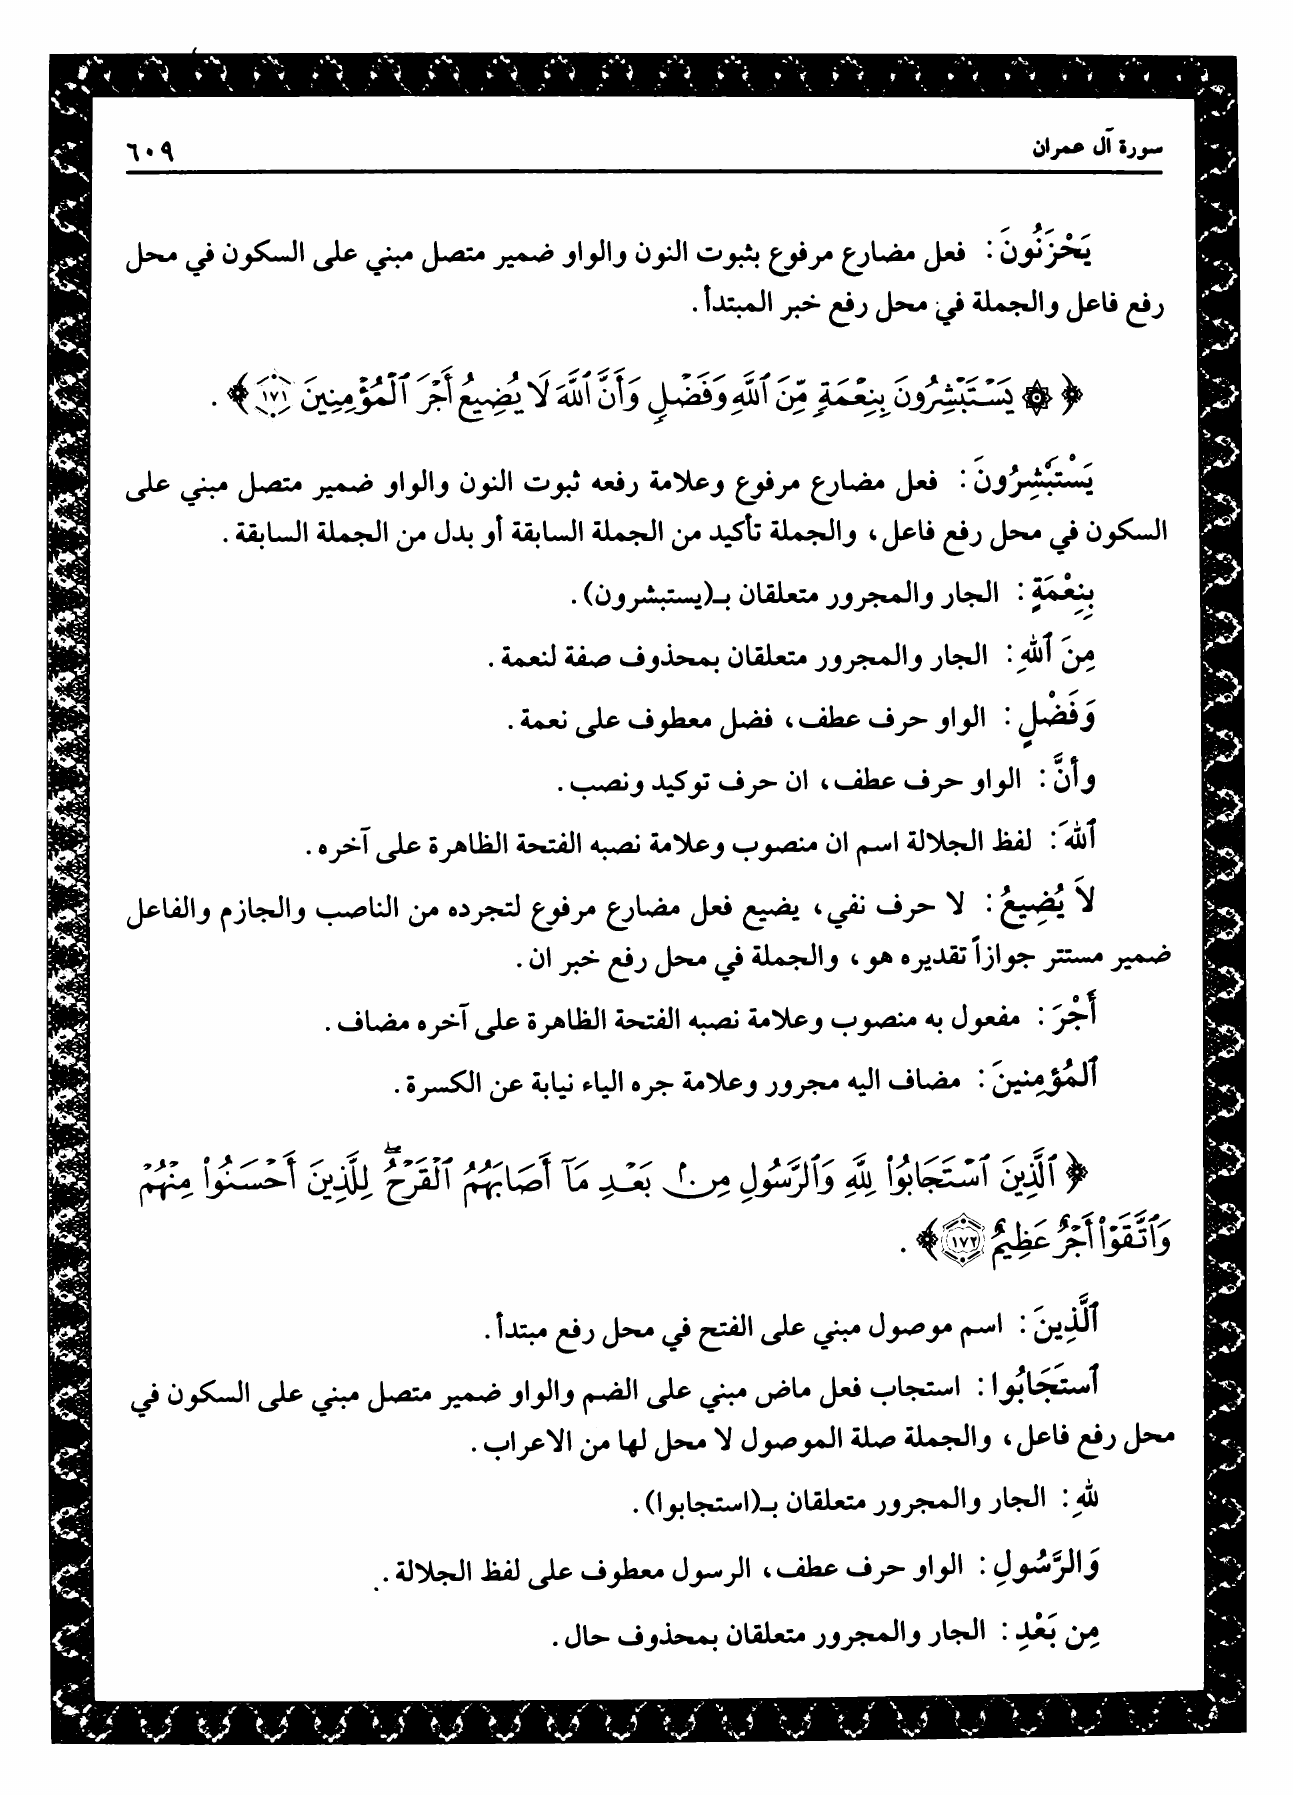 سورة آل عمران
٦٠٩
يَحْزَنُونَ: فعل مضارع مرفوع بثبوت النون والواو ضمير متصل مبني على السكون في محل
رفع فاعل والجملة في محل رفع خبر المبتدأ.
﴿ ۞ يَسْتَبْشِرُونَ بِنِعْمَةٍ مِّنَ ٱللَّهِ وَفَضْلٍ وَأَنَّ ٱللَّهَ لَا يُضِيعُ أَجْرَ ٱلْمُؤْمِنِينَ ١٧١ ﴾.
يَسْتَبْشِرُونَ: فعل مضارع مرفوع وعلامة رفعه ثبوت النون والواو ضمير متصل مبني على
السكون في محل رفع فاعل، والجملة تأكيد من الجملة السابقة أو بدل من الجملة السابقة.
بِنِعْمَةٍ: الجار والمجرور متعلقان بـ(يستبشرون).
مِنَ ٱللهِ: الجار والمجرور متعلقان بمحذوف صفة لنعمة.
وَفَضْلٍ: الواو حرف عطف، فضل معطوف على نعمة.
وأنَّ: الواو حرف عطف، ان حرف توكيد ونصب.
ٱللهَ: لفظ الجلالة اسم ان منصوب وعلامة نصبه الفتحة الظاهرة على آخره.
لاَ يُضِيعُ: لا حرف نفي، يضيع فعل مضارع مرفوع لتجرده من الناصب والجازم والفاعل
ضمير مستتر جوازاً تقديره هو، والجملة في محل رفع خبر ان.
أَجْرَ: مفعول به منصوب وعلامة نصبه الفتحة الظاهرة على آخره مضاف.
ٱلمُؤمِنينَ: مضاف اليه مجرور وعلامة جره الياء نيابة عن الكسرة.
﴿ ٱلَّذِينَ ٱسْتَجَابُوا۟ لِلَّهِ وَٱلرَّسُولِ مِنۢ بَعْدِ مَآ أَصَابَهُمُ ٱلْقَرْحُ ۚ لِلَّذِينَ أَحْسَنُوا۟ مِنْهُمْ
وَٱتَّقَوْا۟ أَجْرٌ عَظِيمٌ ١٧٢ ﴾.
ٱلَّذِينَ: اسم موصول مبني على الفتح في محل رفع مبتدأ.
ٱستَجَابُوا: استجاب فعل ماض مبني على الضم والواو ضمير متصل مبني على السكون في
محل رفع فاعل، والجملة صلة الموصول لا محل لها من الاعراب.
للهِ: الجار والمجرور متعلقان بـ(استجابوا).
وَالرَّسُولِ: الواو حرف عطف، الرسول معطوف على لفظ الجلالة.
مِن بَعْدِ: الجار والمجرور متعلقان بمحذوف حال.